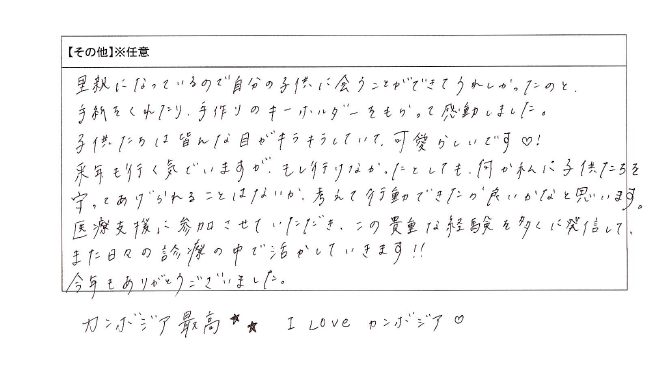 【その他】※任意
里親になっているので自分の子供に会うことができてうれしかったのと、
手紙をくれたり、手作りのキーホルダーをもらって感動しました。
子供たちは皆んな目がキラキラしていて、可愛らしいです♡!
来年も行く気でいますが、もし行けなかったとしても、何か私に子供たちを
守ってあげられることはないか、考えて行動できたが良いかなと思います。
医療支援に参加させていただき、この貴重な経験を多くに発信して、
また日々の診療の中で活かしていきます!!
今年もありがとうございました。
カンボジア最高★★ I Love カンボジア♡